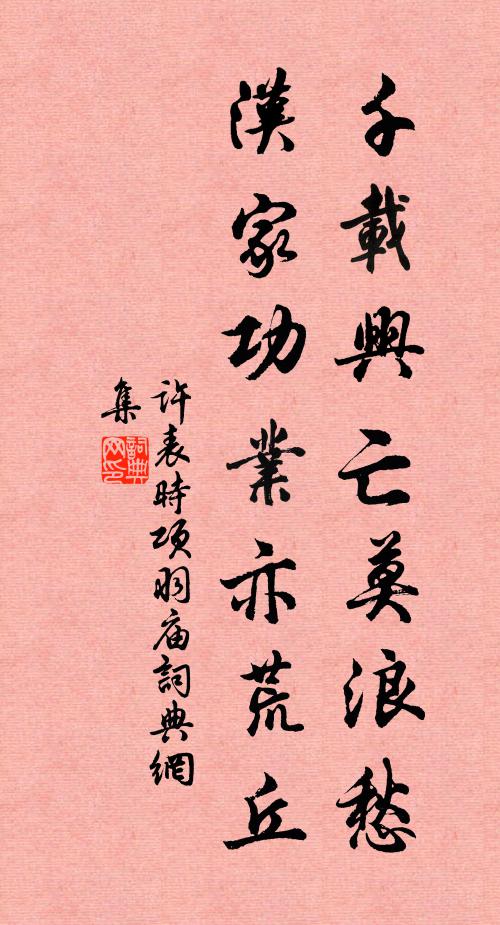 千載興亡莫浪愁
漢家功業亦荒丘
許表時項羽庙詞典網
集
詞典網印